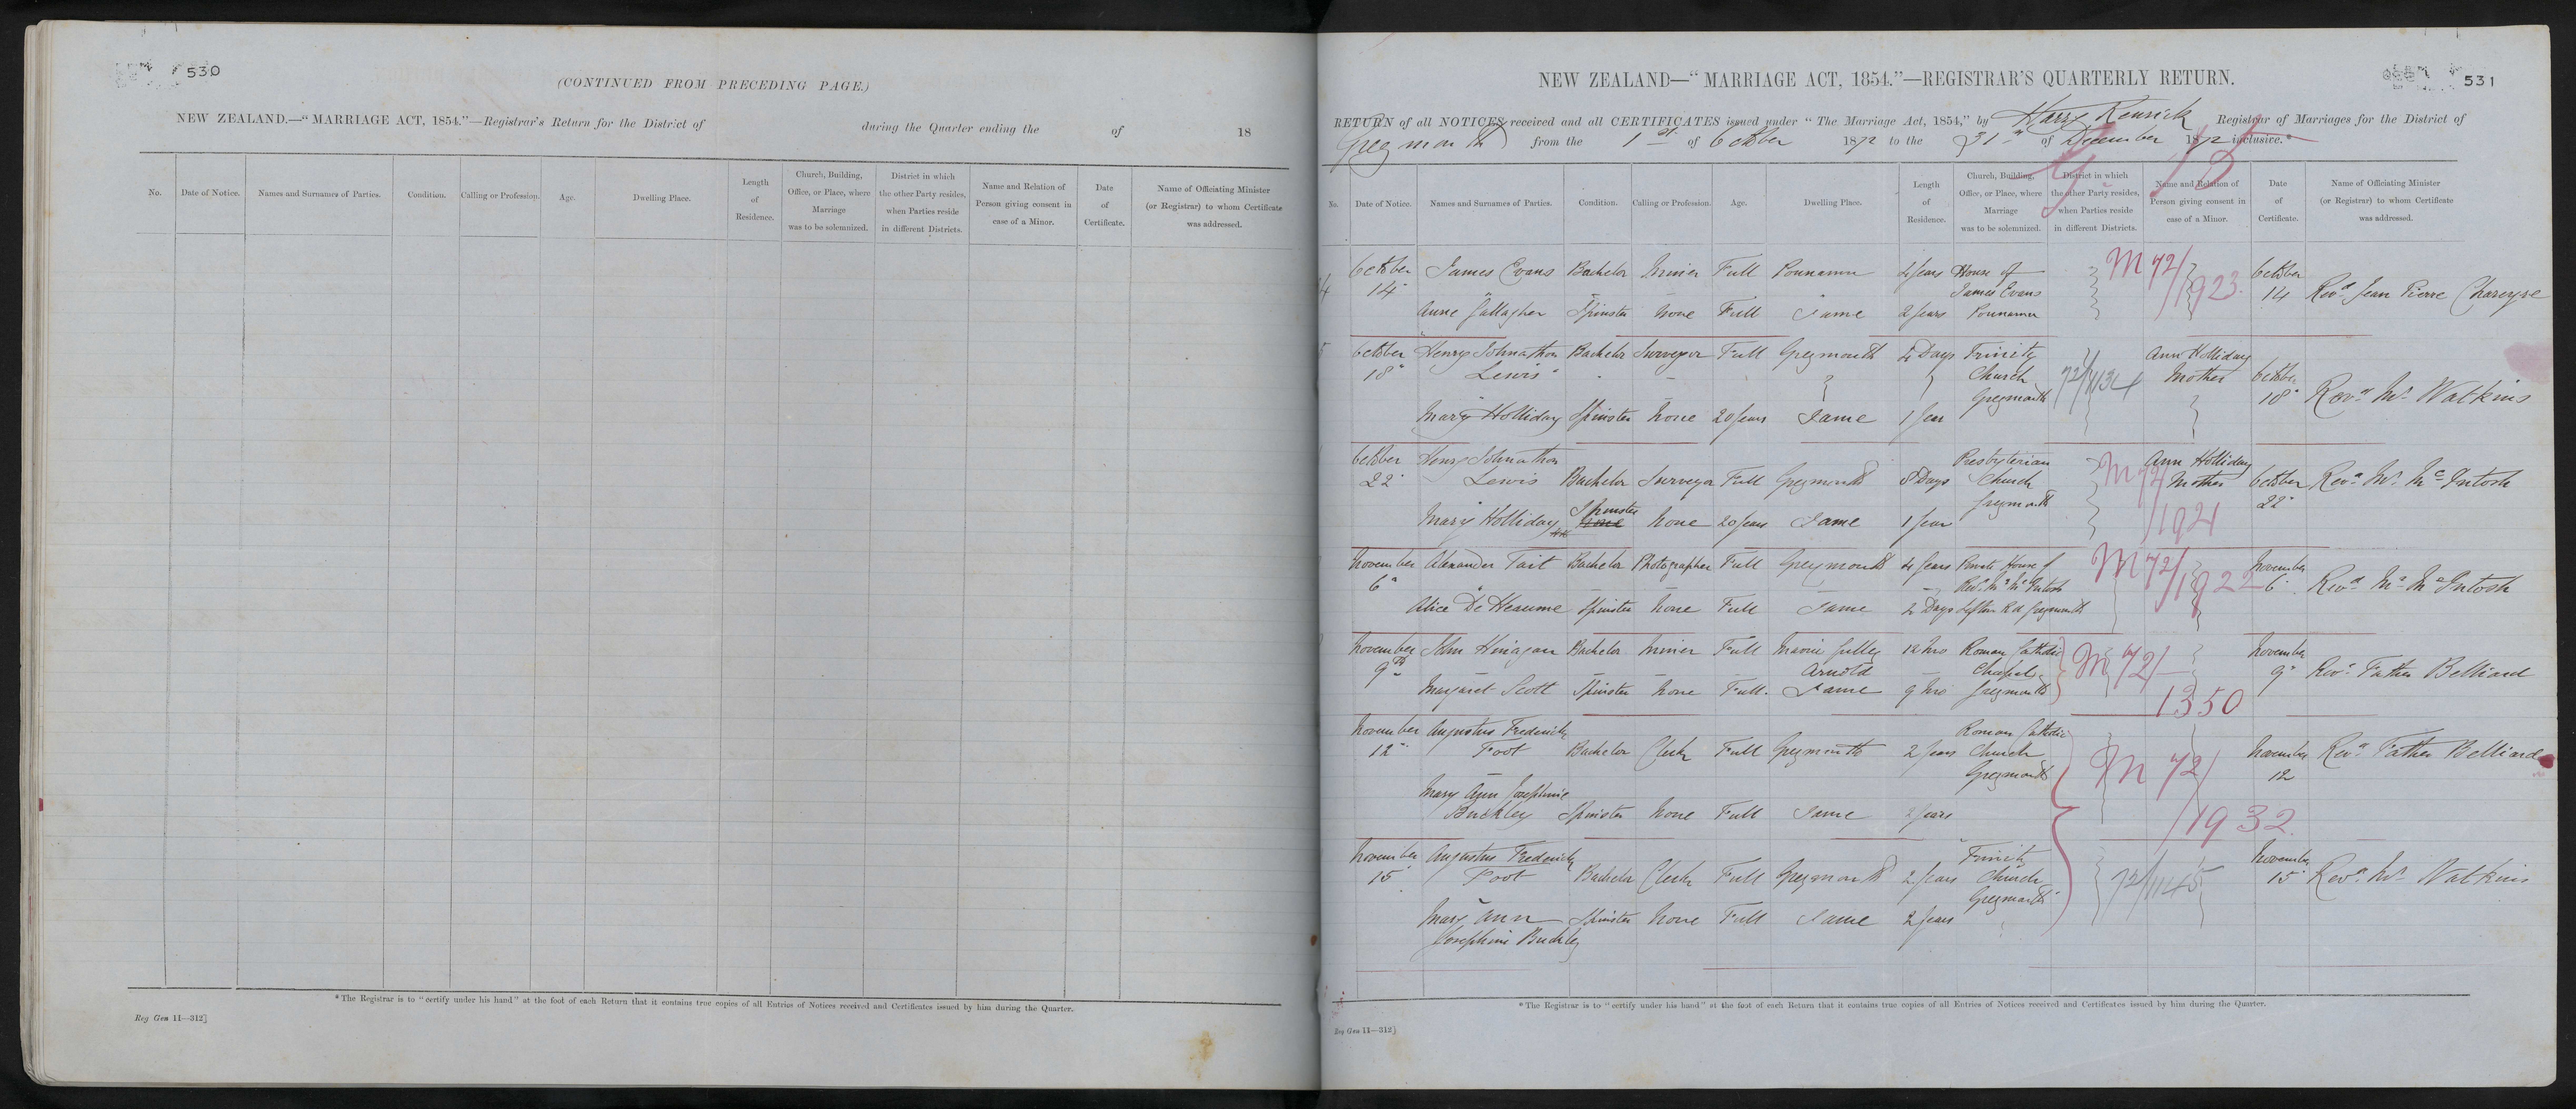 530
(CONTINUED FROM PRECEDING PAGE.)
NEW ZEALAND.—"MARRIAGE ACT, 1854."—Registrar's Return for the District of during the Quarter ending the of 18
No. Date of Notice. Names and Surnames of Parties. Condition. Calling or Profession. Age. Dwelling Place. Length of Residence. Church, Building, Office, or Place, where Marriage was to be solemnized. District in which the other Party resides, when Parties reside in different Districts. Name and Relation of Person giving consent in case of a Minor. Date of Certificate. Name of Officiating Minister (or Registrar) to whom Certificate was addressed.
* The Registrar is to "certify under his hand" at the foot of each Return that it contains true copies of all Entries of Notices received and Certificates issued by him during the Quarter.
Reg Gen 11—312]
531
NEW ZEALAND—"MARRIAGE ACT, 1854."—REGISTRAR'S QUARTERLY RETURN.
RETURN of all NOTICES received and all CERTIFICATES issued under "The Marriage Act, 1854," by Harry Kenrick Registrar of Marriages for the District of
Greymouth from the 1st of October 1872 to the 31st of December 1872 inclusive.*
No. Date of Notice. Names and Surnames of Parties. Condition. Calling or Profession. Age. Dwelling Place. Length of Residence. Church, Building, Office, or Place, where Marriage was to be solemnized. District in which the other Party resides, when Parties reside in different Districts. Name and Relation of Person giving consent in case of a Minor. Date of Certificate. Name of Officiating Minister (or Registrar) to whom Certificate was addressed.
October James Evans Bachelor Miner Full Pounamu 4 years House of M 72/ October
14 James Evans 1923 14 Revd Jean Pierre Chareyre
Anne Gallagher Spinster None Full Same 2 years Pounamu
October Henry Johnathon Bachelor Surveyor Full Greymouth 4 Days Trinity Ann Holliday
18 Lewis Church 72/1134 Mother October
Greymouth 18 Revd Mr Watkins
Mary Holliday Spinster None 20 years Same 1 year
October Henry Johnathon Presbyterian Ann Holliday
22 Lewis Bachelor Surveyor Full Greymouth 8 Days Church M 72/ Mother October Revd Mr McIntosh
Greymouth 22
Mary Holliday Spinster None 20 years Same 1 year 1921
November Alexander Tait Bachelor Photographer Full Greymouth 4 years Private House of M 72/1922 November
6 Revd Mr McIntosh 6 Revd Mr McIntosh
Alice De Heaume Spinster None Full Same 2 Days Greymouth
November John Hinagan Bachelor Miner Full Maori Gulley 12 Mos Roman Catholic M 72/ November
9th Arnold Chapel 9 Revd Father Belliard
Margaret Scott Spinster None Full Same 9 Mos Greymouth 1350
November Augustus Frederick Roman Catholic
12 Foot Bachelor Clerk Full Greymouth 2 years Church M 72/ November Revd Father Belliard
Greymouth 12
Mary Ann Josephine
Buckley Spinster None Full Same 2 years 1932
November Augustus Frederick Trinity November
15 Foot Bachelor Clerk Full Greymouth 2 years Church 72/1145 15 Revd Mr Watkins
Greymouth
Mary Ann Spinster None Full Same 2 years
Josephine Buckley
* The Registrar is to "certify under his hand" at the foot of each Return that it contains true copies of all Entries of Notices received and Certificates issued by him during the Quarter.
Reg Gen 11—312]